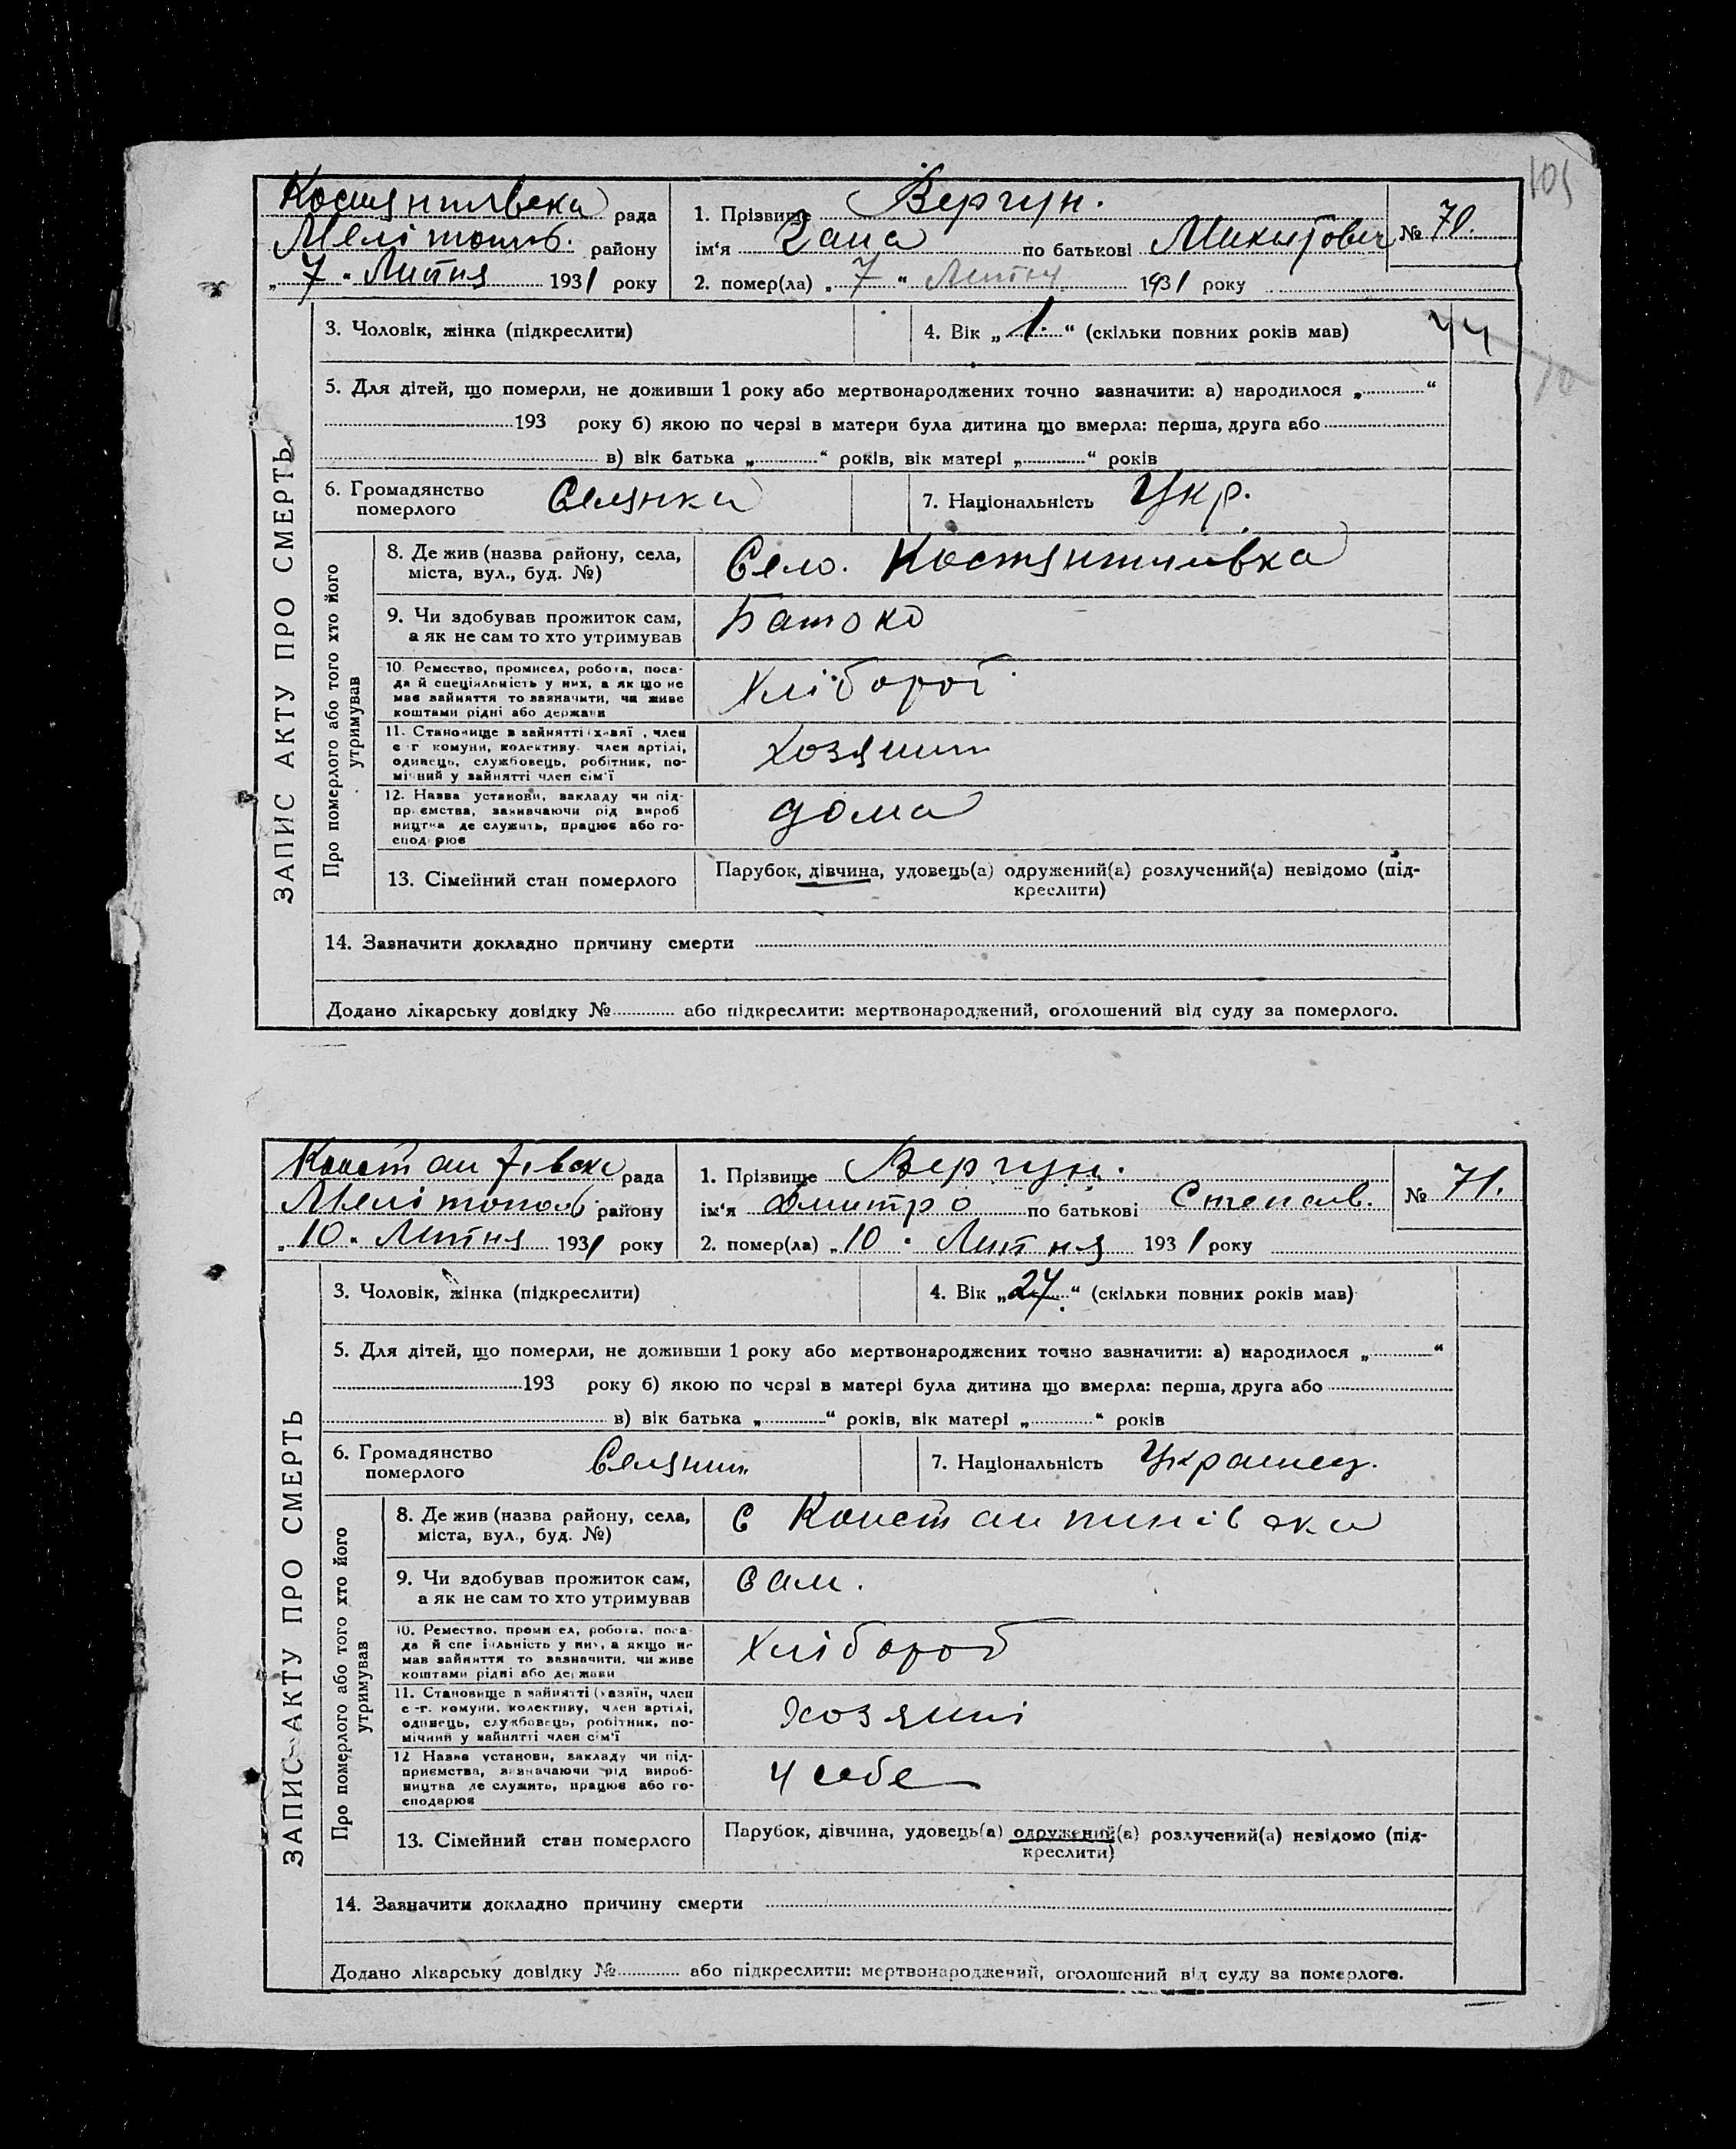 105
Костянтивска рада
Мелітопол. району
„ 7 " Липня 1931 року
1. Прізвище Вергун.
ім'я по батькові Микитович
№ 70.
2. помер(ла) „ 7 " Липня 1931 року
3. Чоловік, жінка (підкреслити)
4. Вік „ 1. " (скільки повних років мав)
5. Для дітей, що померли, не доживши 1 року або мертвонароджених точно зазначити: а) народилося „ "
193 року б) якою по черзі в матери була дитина що вмерла: перша, друга або
в) вік батька „ " років, вік матері „ " років
6. Громадянство померлого Селянка
7. Національність Укр.
ЗАПИС АКТУ ПРО СМЕРТЬ
Про померлого або того хто його утримував
8. Де жив (назва району, села,
міста, вул., буд. №)
Село. Костянтинивка
9. Чи здобував прожиток сам,
а як не сам то хто утримував
Батоко
10. Ремество, промисел, робота, поса-
да й спеціяльність у них, а як що не
має зайняття то зазначити, чи живе
коштами рідні або держави
Хлібороб
11. Становище в зайнятті (хазяї , член
с г комуни, колективу. член артілі,
одинець, службовець, робітник, по-
мічний у зайнятті член сім'ї
Хозяин
12. Назва установи, закладу чи під-
приємства, зазначаючи рід вироб
ництва де служить, працює або го-
сподарює
дома
13. Сімейний стан померлого
Парубок, дівчина, удовець(а) одружений(а) розлучений(а) невідомо (під-
креслити)
14. Зазначити докладно причину смерти
Додано лікарську довідку № або підкреслити: мертвонароджений, оголошений від суду за померлого.
рада
Мелітополь району
„ 10 " Липня 1931 року
1. Прізвище Вергун.
ім'я Дмитро по батькові Степав.
№ 71.
2. помер(ла) „ 10 " Липня 1931 року
3. Чоловік, жінка (підкреслити)
4. Вік „ 27. " (скільки повних років мав)
5. Для дітей, що померли, не доживши 1 року або мертвонароджених точно зазначити: а) народилося „ "
193 року б) якою по черзі в матері була дитина що вмерла: перша, друга або
в) вік батька „ " років, вік матері „ " років
6. Громадянство померлого Селянин
7. Національність Украинец.
ЗАПИС АКТУ ПРО СМЕРТЬ
Про померлого або того хто його утримував
8. Де жив (назва району, села,
міста, вул., буд. №)
с Константинівка
9. Чи здобував прожиток сам,
а як не сам то хто утримував
сам.
10. Ремество, проми ел, робота, поса-
да й спе іяльність у них, а якщо не
мав зайняття то зазначити, чи живе
коштами рідні або держави
Хлібороб
11. Становище в зайнятті (хазяїн, член
с -г. комуни, колективу, член артілі,
одинець, службовець, робітник, по-
мічний у зайнятті член сім'ї
Хозяин
12 Назва установи, закладу чи під-
приємства, зазначаючи рід вироб-
ництва де служить, працює або го-
сподарює
у себе
13. Сімейний стан померлого
Парубок, дівчина, удовець(а) одружений(а) розлучений(а) невідомо (під-
креслити)
14. Зазначити докладно причину смерти
Додано лікарську довідку № або підкреслити: мертвонароджений, оголошений від суду за померлого.